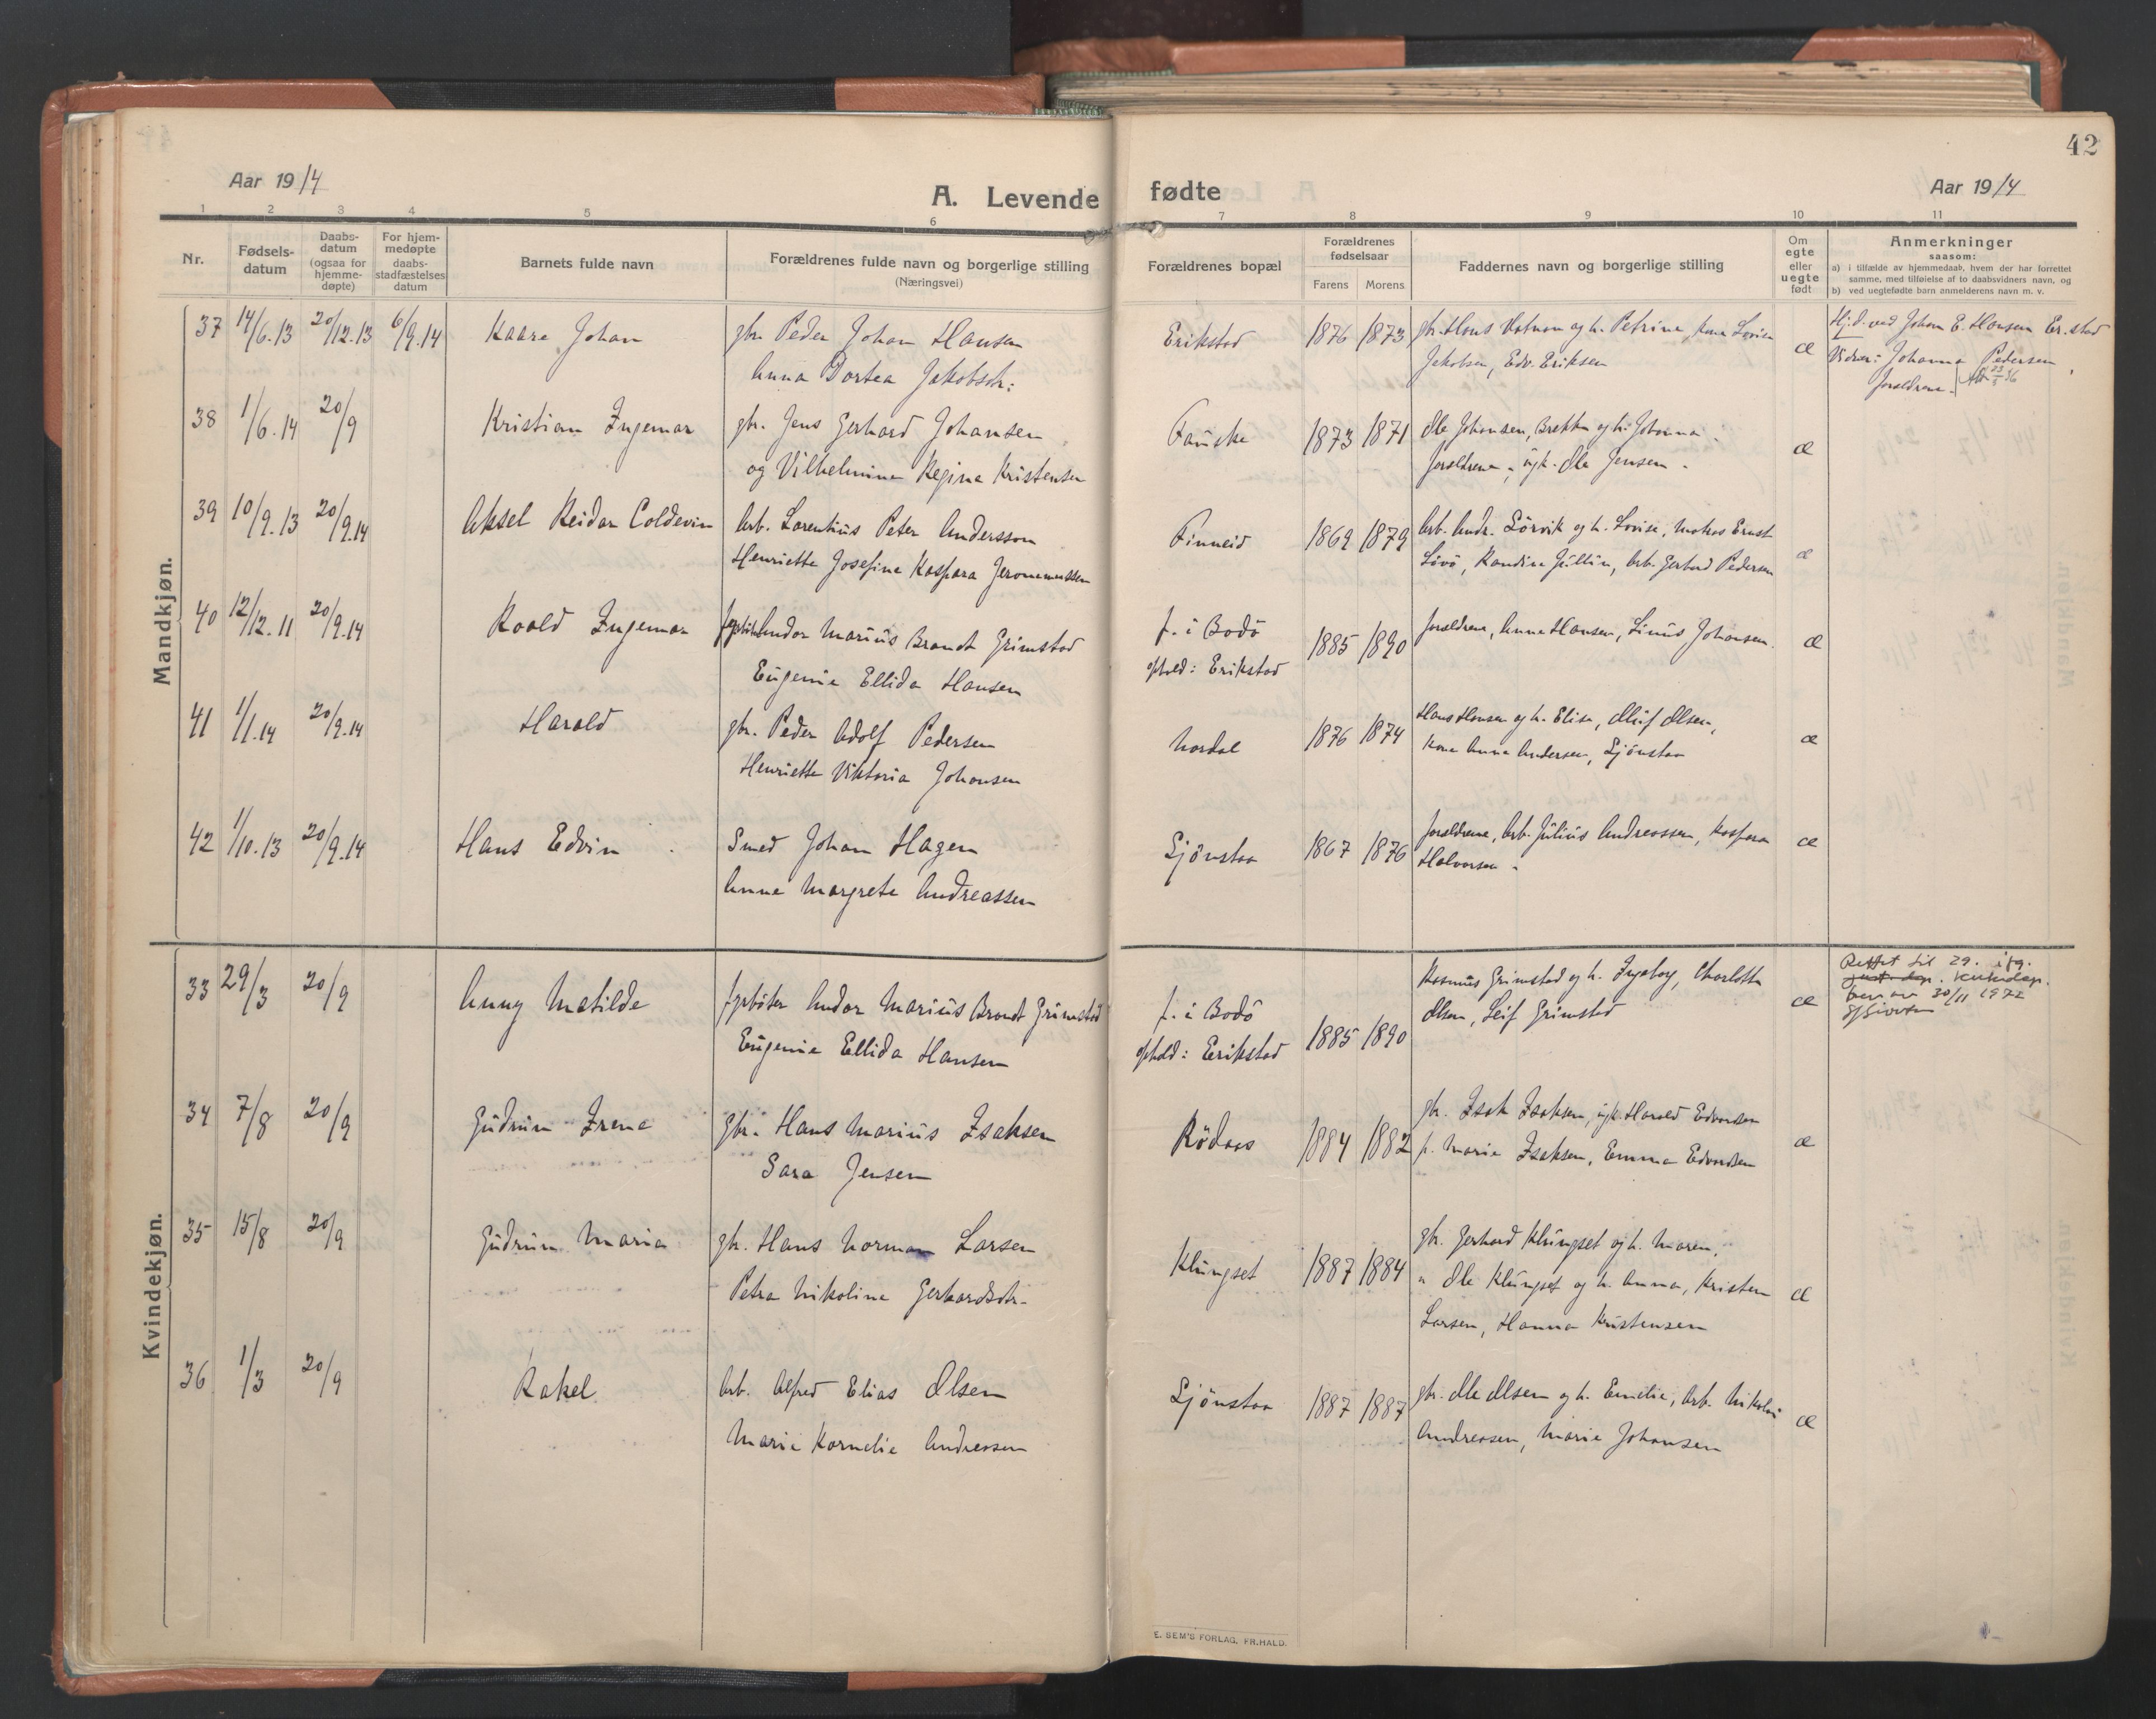 42
Aar 1914
A. Levende fødte
Aar 1914
1 2 3 4 5 6 7 8 9 10 11
Nr.
Fødsels-
datum
Daabs-
datum
(ogsaa for
hjemme-
døpte)
For hjem-
medøpte
daabs-
stadfæstelses
datum
Barnets fulde navn
Forældrenes fulde navn og borgerlige stilling
(Næringsvei)
Forældrenes bopæl
Forældrenes
fødselsaar
Farens Morens
Faddernes navn og borgerlige stilling
Om
egte
eller
uegte
født
Anmerkninger
saasom:
a) i tilfælde av hjemmedaab, hvem der har forrettet
samme, med tilføielse af to daabsvidners navn, og
b) ved uegtefødte barn anmelderens navn m. v.
Mandkjøn.
37 14/6.13 20/12.13 6/9.14 Kaare Johan gbr. Peder Johan Hansen Erikstad 1876 1873 gbr. Hans Vatnan og h. Petrine, kone Lovise æ Hj.d. ved Johan E. Hansen Er.stad
Anna Dortea Jakobsdr: Jakobsen, Edv. Eriksen Vidner: Johanna Pedersen,
forældrene.
38 1/6.14 20/9 Kristian Ingemar gbr. Jens Gerhard Johansen Fauske 1873 1871 Ole Johansen, Brekke og h. Johanna. æ
og Vilhelmine Regine Kristensen forældrene, ugk. Ole Jensen.
39 10/9.13 20/9.14 Aksel Reidar Coldevin Arb. Lorentius Peter Andersson Finneid 1869 1879 Arb. Andr. Lörvik og h. Lovise, Ernst æ
Henriette Josefine Kaspara Jeronemussen Lövö, Randine Jullin, Arb. Gerhard Pedersen
40 12/12.11 20/9.14 Roald Ingemar fyrböter Andor Marius Brandt Grimstad f. i Bodö 1885 1890 forældrene, Anne Hansen, Linus Johansen. æ
Eugenie Ellida Hansen ophold: Erikstad
41 1/1.14 20/9.14 Harald gbr. Peder Adolf Pedersen Nordal 1876 1874 Hans Hansen og h. Elise, Oluf Olsen, æ
Henriette Viktoria Johansen Kone Anna Andersen, Sjönstaa
42 1/10.13 20/9.14 Hans Edvin Smed Johan Hagen Sjönstaa 1867 1876 forældrene, Arb. Julius Andreassen, Kaspara æ
Anne Margrete Andreassen Halvorsen
Kvindekjøn.
33 29/3 20/9 Anny Matilde fyrböter Andor Marius Brandt Grimstad f. i Bodö 1885 1890 Rasmus Grimstad og h. Ingeborg, Charlotte æ Rettet til 29. ifg.
Eugenie Ellida Hansen ophold: Erikstad Olsen, Leif Grimstad just.dep. Kirkedep.
brev av 30/11 1972
34 7/8 20/9 Gudrun Irene Gbr. Hans Marius Isaksen Rödaas 1884 1882 gbr. Isak Isaksen, ugk. Harald Edvardsen æ
Sara Jensen p. Marie Isaksen, Emma Edvardsen
35 15/8 20/9 Gudrun Marie gbr. Hans Norman Larsen Klungset 1887 1884 gbr. Gerhard Klungset og h. Maren, æ
Petra Nikoline Gerhardsdr. " Ole Klungset og h. Anna, Kristen
Larsen, Hanna Kristensen
36 1/3 20/9 Rakel Arb. Alfred Elias Olsen Sjönstaa 1887 1887 gbr. Ole Olsen og h. Emelie, Arb. Nikolai æ
Marie Kornelie Andreasen Andreasen, Marie Johansen
E. SEM'S FORLAG, FR.HALD.